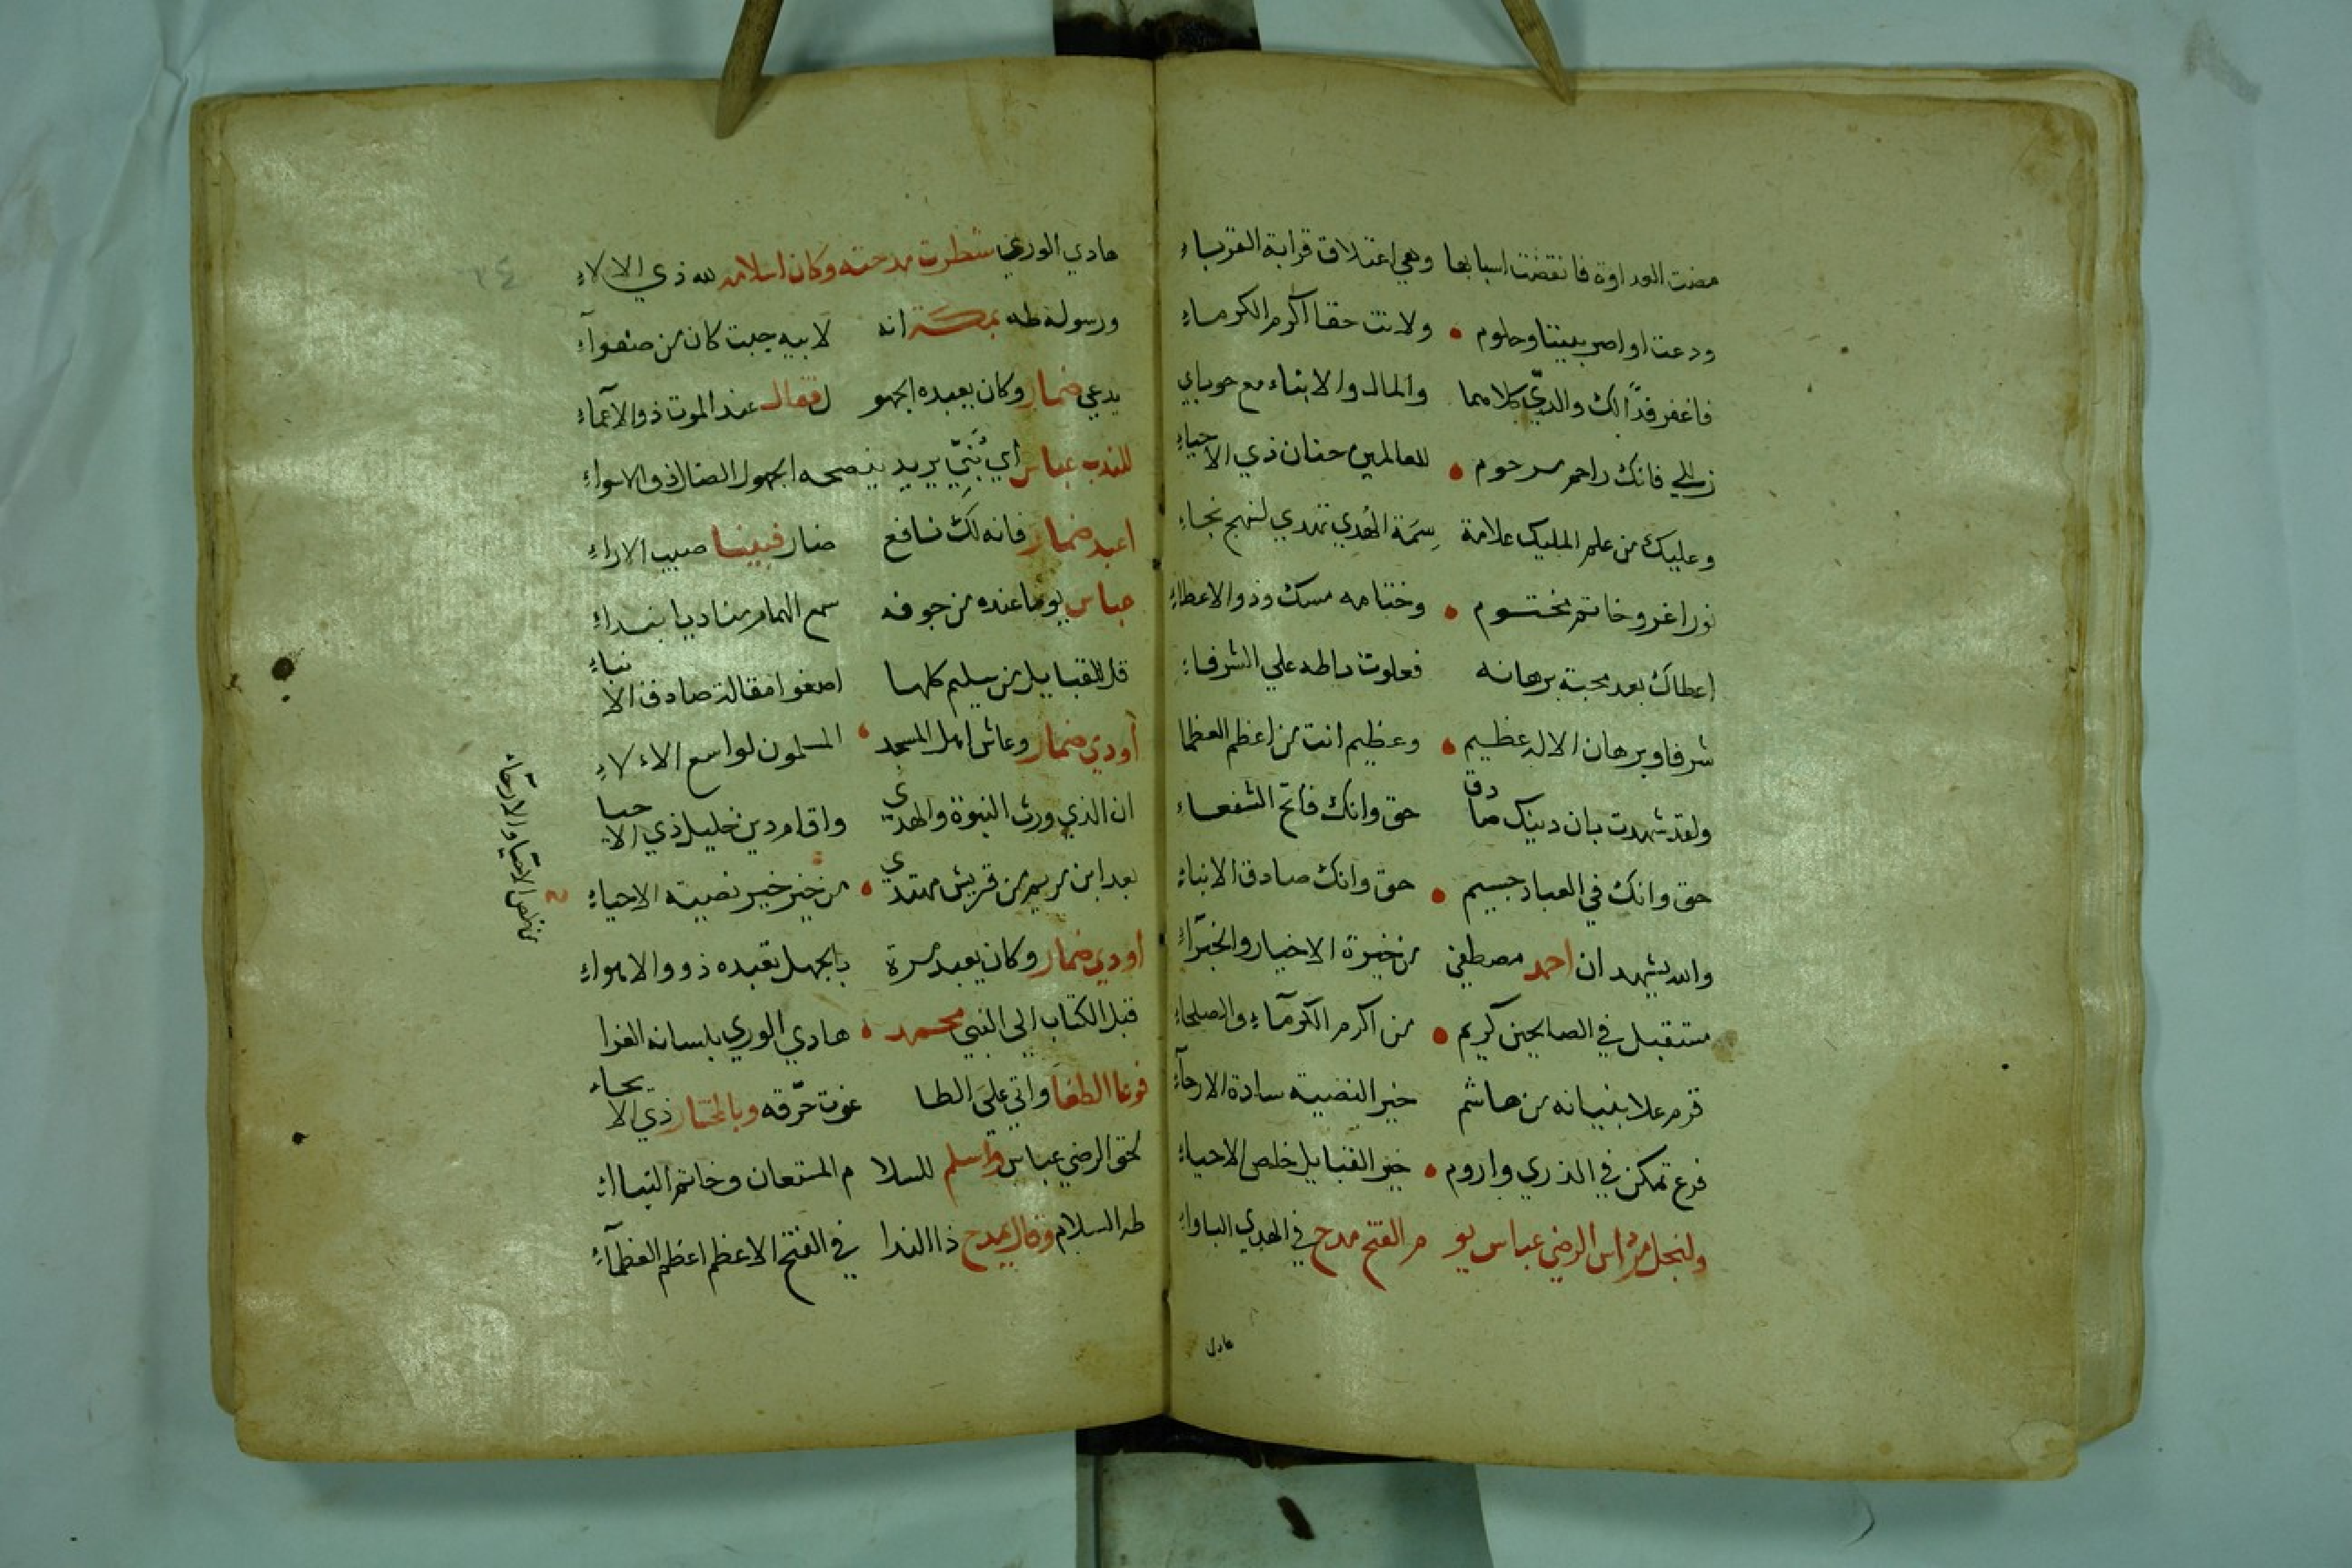 مضت العداوة فانقضت اسبابها وهي اعتلاق قرابة القرباء
ودعت اواصر بيننا وحلوم ولانت حقا اكرم الكرماء
فاغفر فدًا لك والديّ كلاهما والمال والابناء مع حوباي
زللي فانك راحم مرحوم للعالمين حنان ذي الاحياء
وعليك من علم المليك علامة سِمَة الهُدي تهدي لنهج نجاء
نور اغر وخاتم مختوم وختامه مسك وذو الاعطاء
اعطاك بعد محبة برهانه فعلوت ياطه علي الشرفاء
شرفا وبرهان الاله عظيم وعظيم انت من اعظم العظما
ولقد شهدت بان دينك صادق حق وانك فاتح الشفعاء
حق وانك في العباد جسيم حق وانك صادق الانباء
والله يشهد ان احمد مصطفي من خيرة الاخيار والخبراء
مستقبل في الصالحين كريم من اكرم الكرمآء والصلحاء
قرم علا بنيانه من هاشم خير النضيية سادة الارحآء
فرع تمكن في الذري واروم خير القبايل خلص الاحياء
ولنجل مرداس الرضي عباس يو م الفتح مدح في الهدي الباواء
هادي
هادي الوري شطرت مدحته وكان اسلامه لله ذي الالاء
ورسوله طه بمكة انه لابيه جبت كان من صنعوآء
يدعي ضمار وكان يعبده الجهو ل فقال عند الموت ذو الاعماء
للندب عباس أي بُنَيّ يريد ينصحه الجهول الضال ذو الاسواء
اعبد ضمار فانه لَكَ نافع ضار فبينا صيب الاراء
عباس يوما عنده من جوفه سمع الهمام مناديا بنداء
قل للقبايل من سليم كلها اصغوا مقالة صادق الانباء
أودي ضمار وعاش اهل المسجد المسلمون لواسع الالاء
ان الذي ورث النبوة والهدي واقام دين خليل ذي الاحيا
بعد ابن مريم من قريش مهتدي من خير خير نضيية الاحياء
أودي ضمار وكان يعبد مرة بالجهل تعبده ذوو الاهواء
قبل الكتاب الي النبي محمد هادي الوري بلسانه الغرا
فوعا الطغا واتي علي الطا غوت حرّقه وبالمختار ذي الايحاء
لحق الرضي عباس واسلم للسلا م المستعان وخاتم النباآء
طه السلام وقال يمدح ذا الندا في الفتح الاعظم اعظم العظمآء